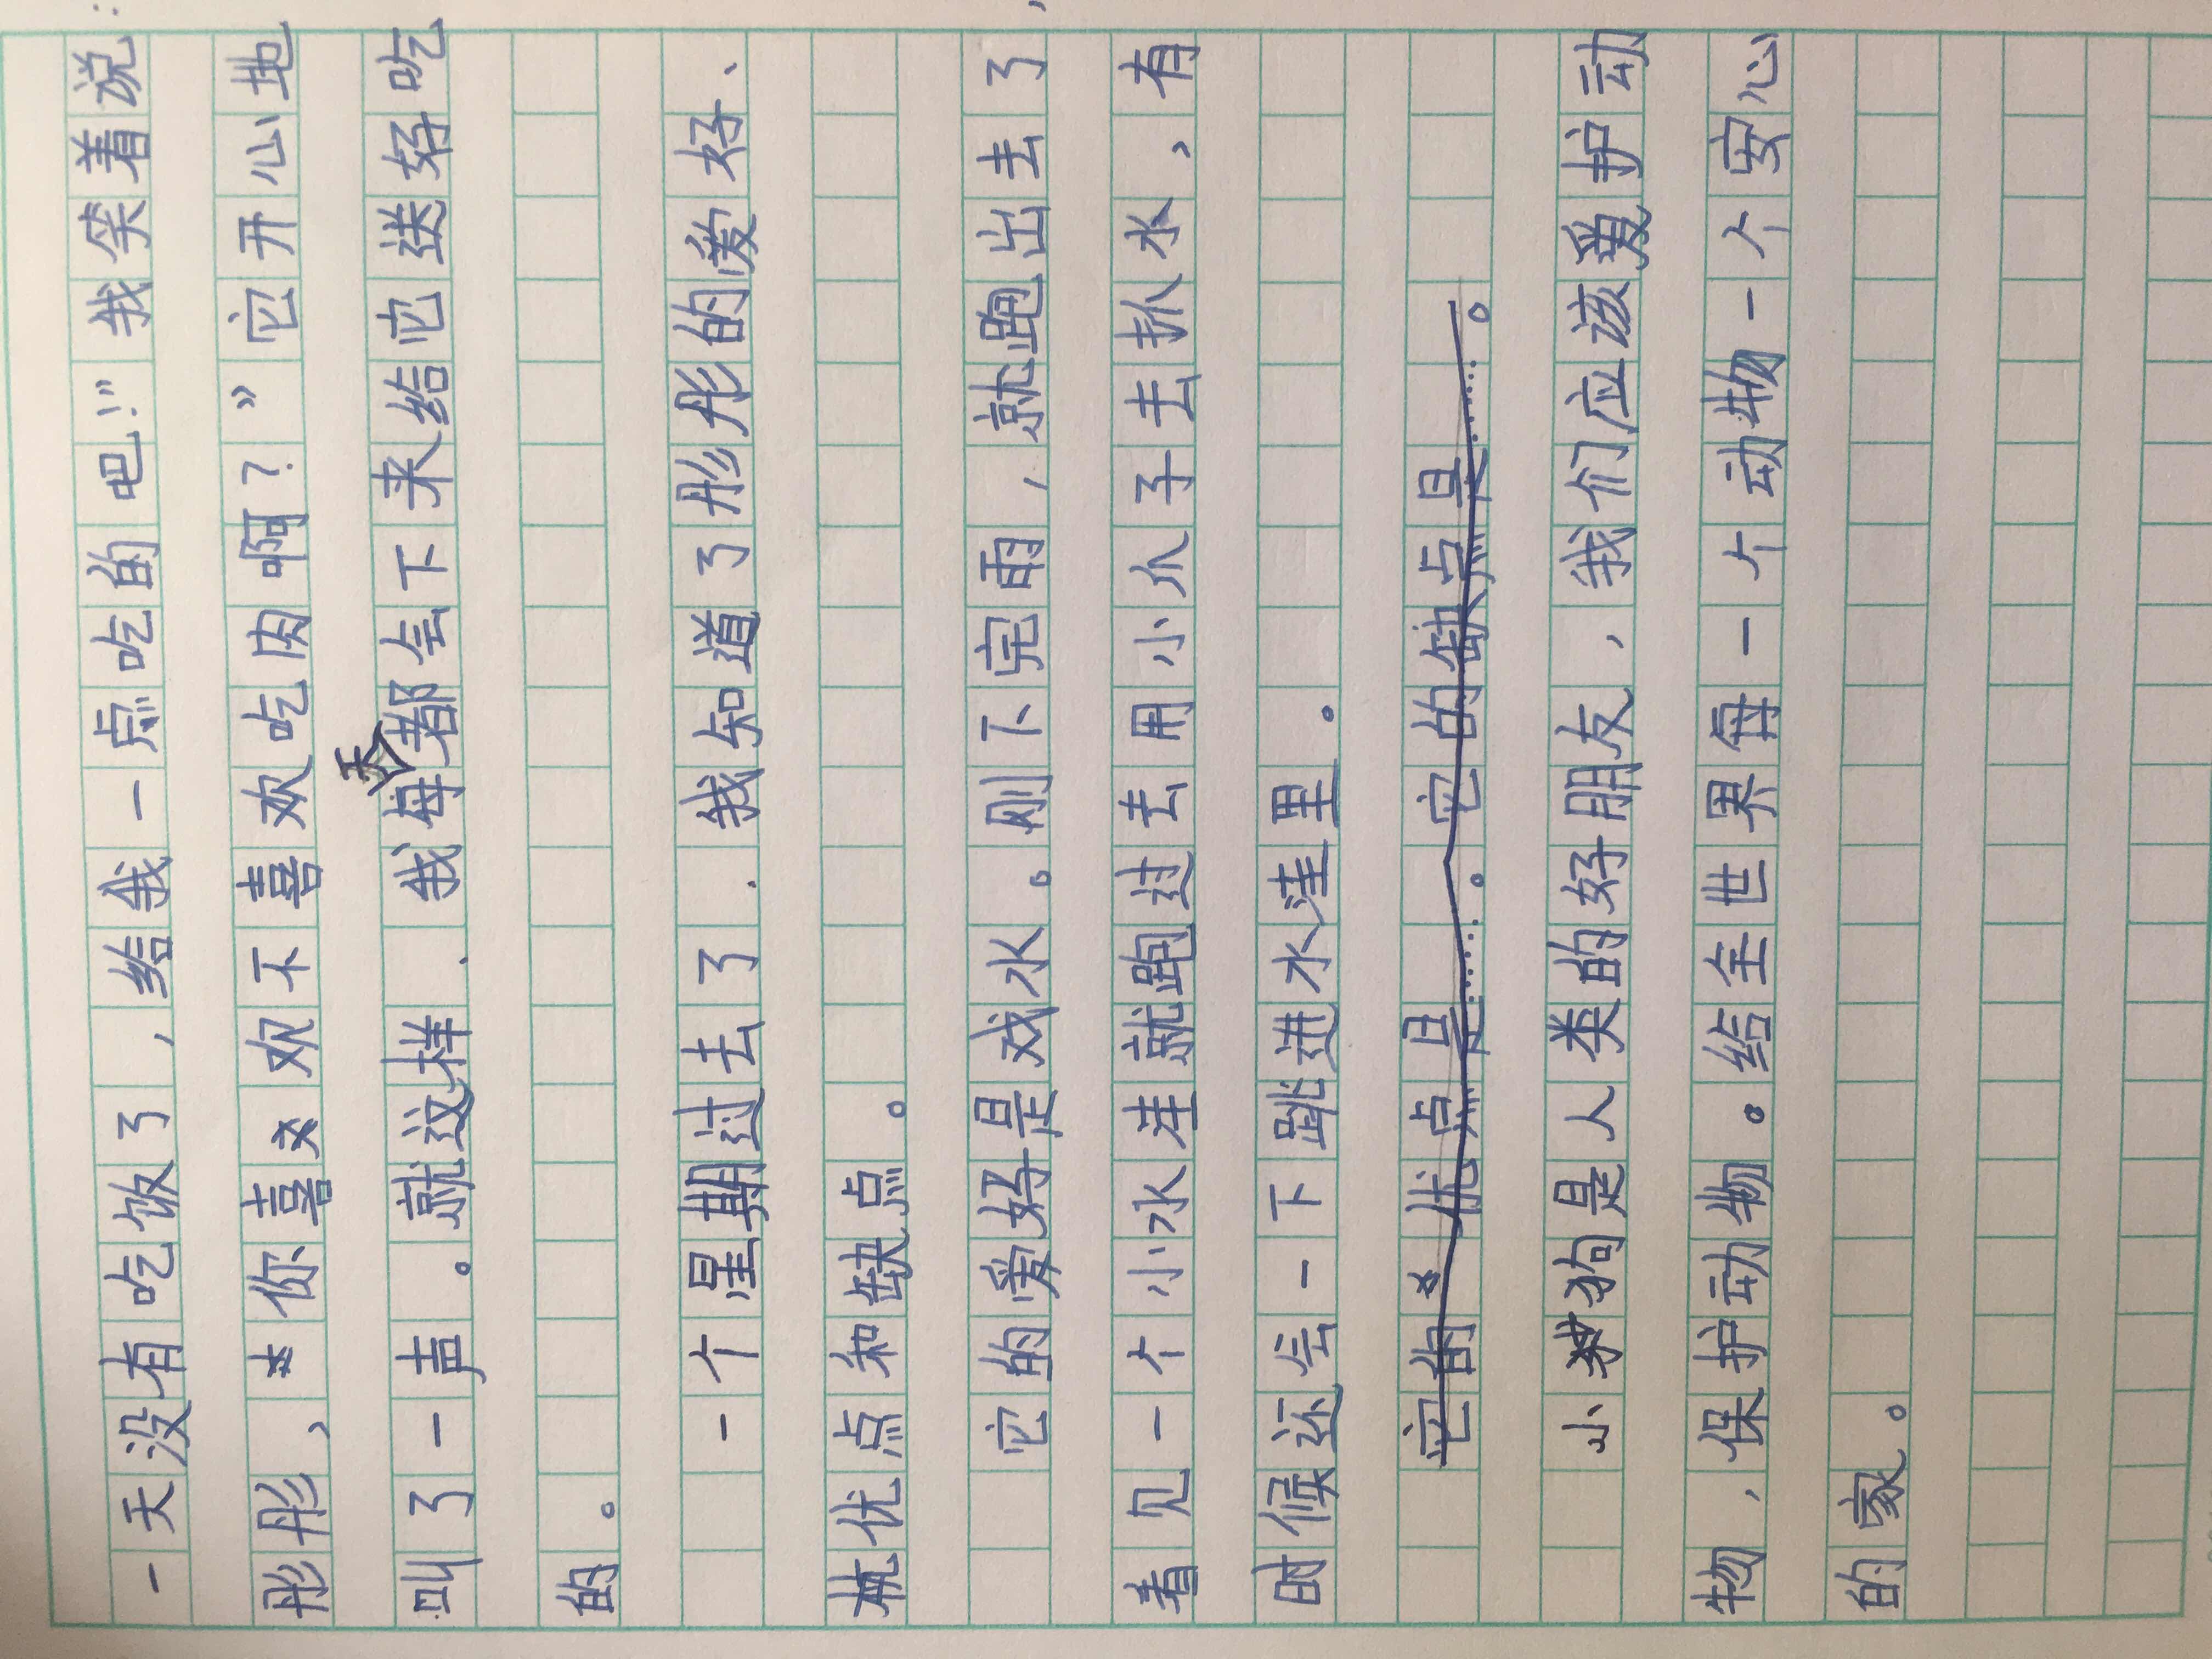 一天没有吃饭了，给我一点吃的吧！”我笑着说：
彤彤，你喜欢不喜欢吃肉啊？”它开心地
叫了一声。就这样．我每天都会下来给它送好吃
的。
一个星期过去了．我知道了彤彤的爱好、
优点和缺点。
它的爱好是戏水。刚下完雨，就跑出去了，
看见一个小水洼就跑过去用小爪子去扒水，有
时候还会一下跳进水洼里。
它的优点是……。它的缺点是……。
小狗是人类的好朋友，我们应该爱护动
物，保护动物。给全世界每一个动物一个安心
的家。